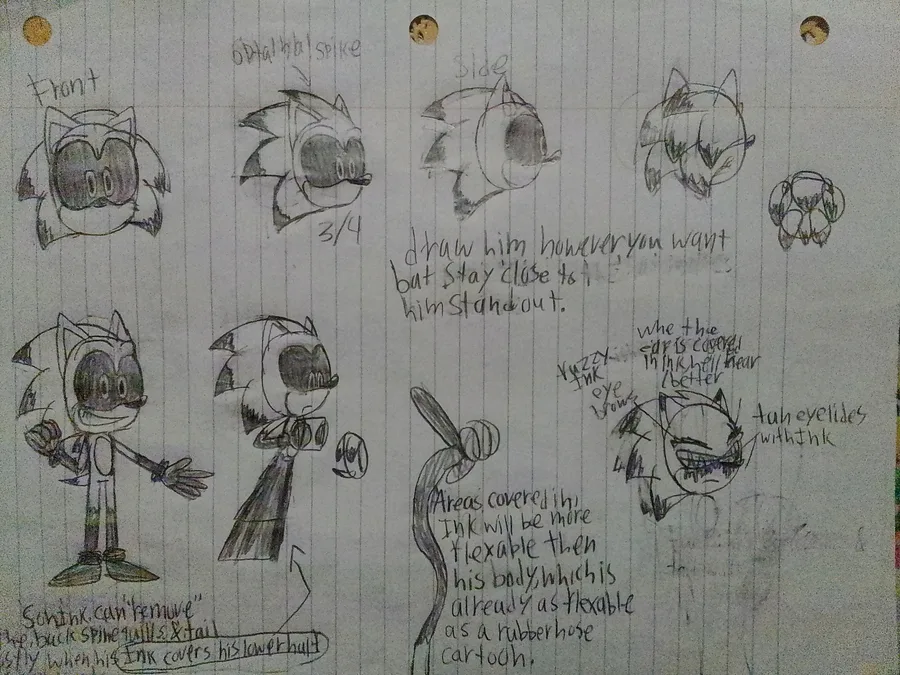 Front
spike
Side
3/4
draw him however you want
but stay close to
him stand out.
whe the
ear is coverd
in ink he'll hear
better
fuzzy
Ink
eye
brows
tan eyelides
with Ink
Areas covered in
Ink will be more
flexable then
his body, which is
already as flexable
as a rubberhose
cartoon.
SonInk can "remove"
the back spine quills & tail
when his Ink covers his lower half